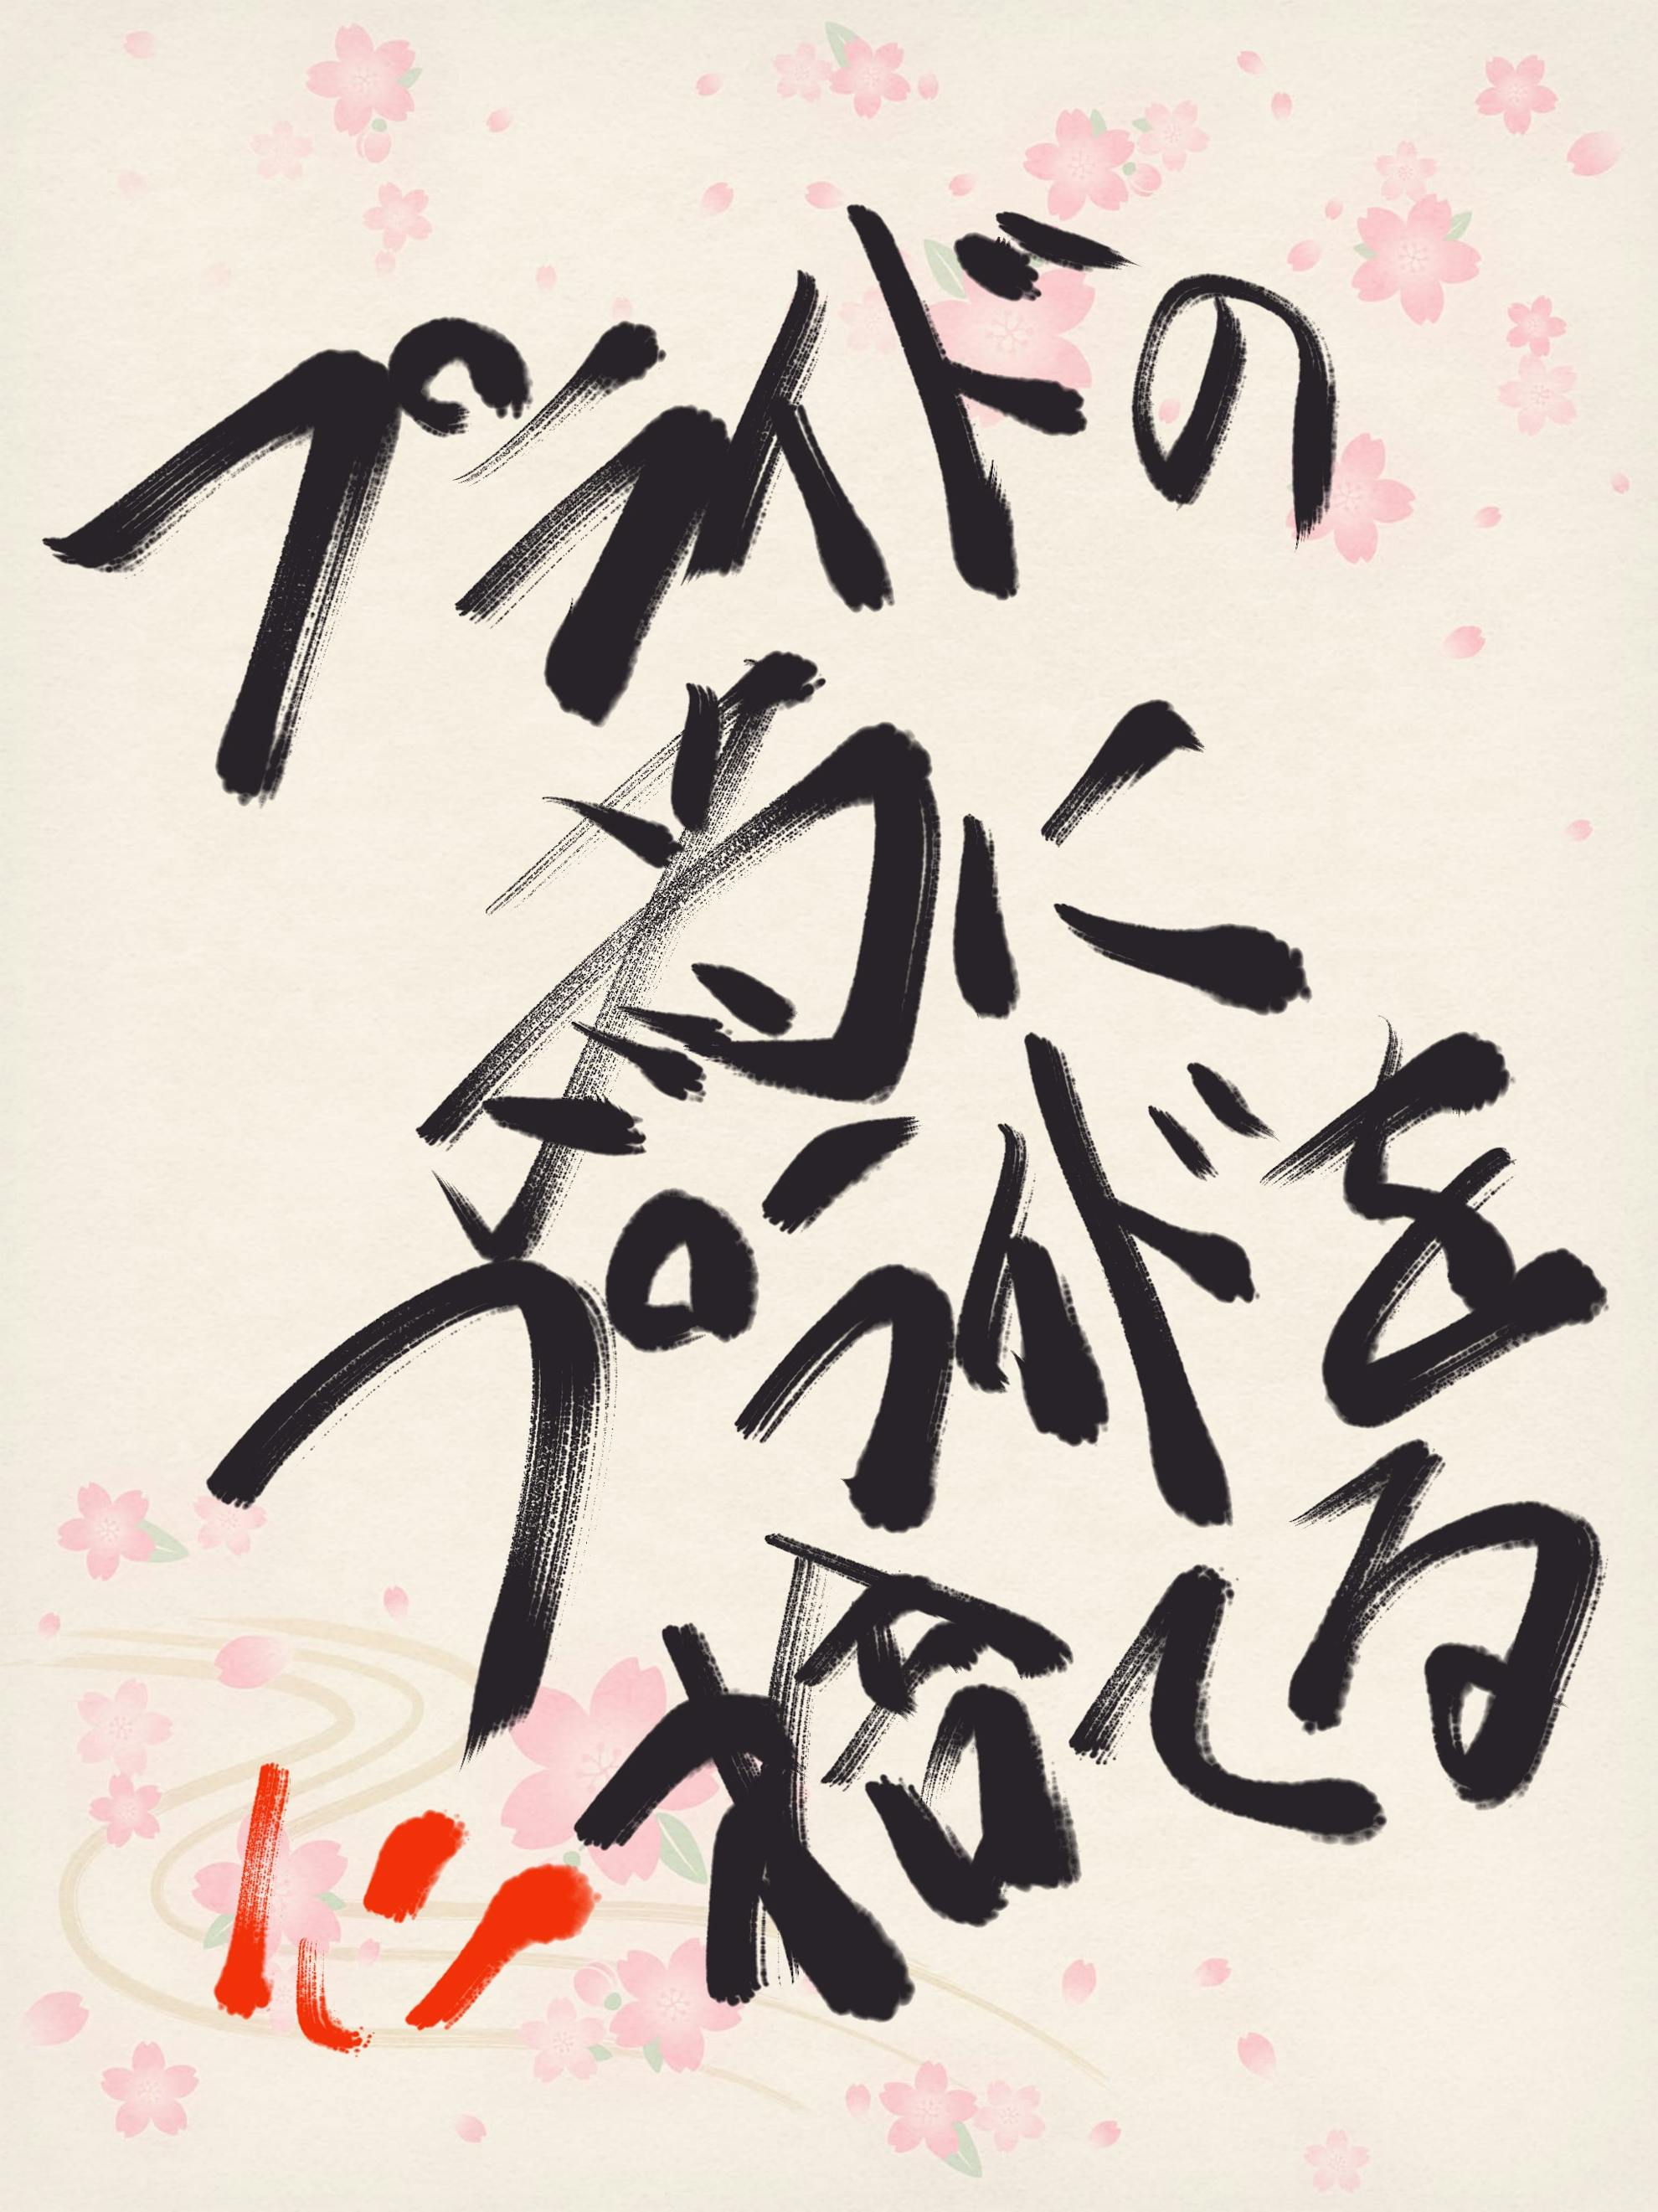 プライドの
為に
プライドを
捨てる
心